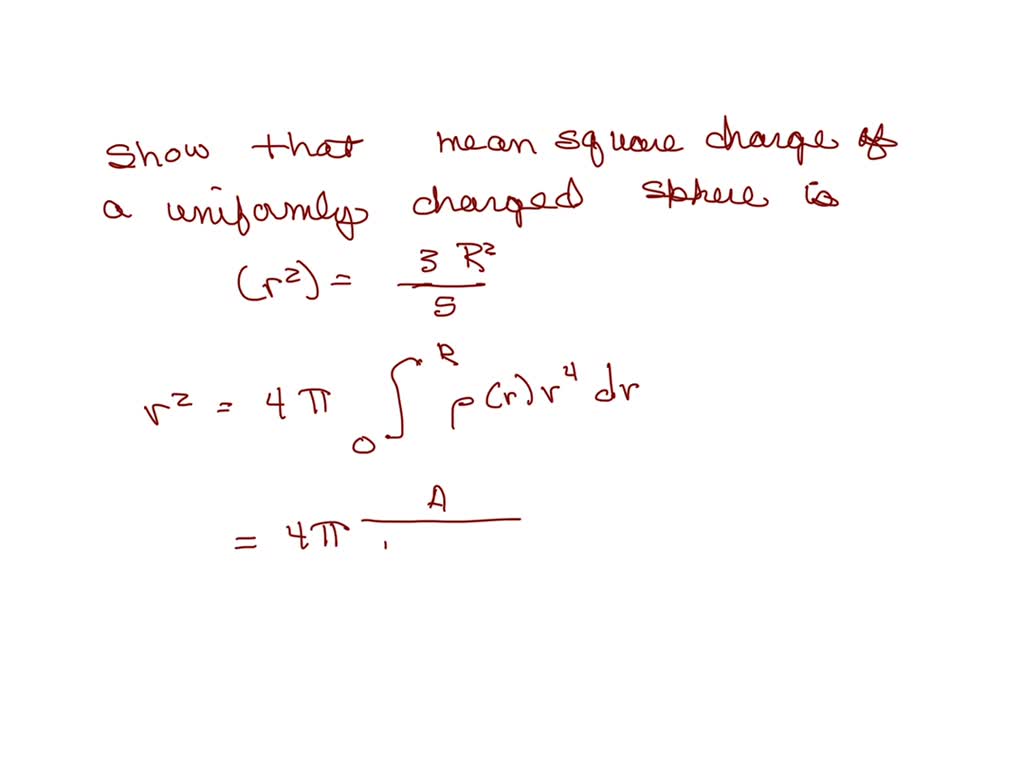 show that mean square charge of
a uniformly charged sphere is
(r²) = 3 R² / 5
r² = 4 π ∫₀ᴿ ρ(r) r⁴ dr
= 4π A